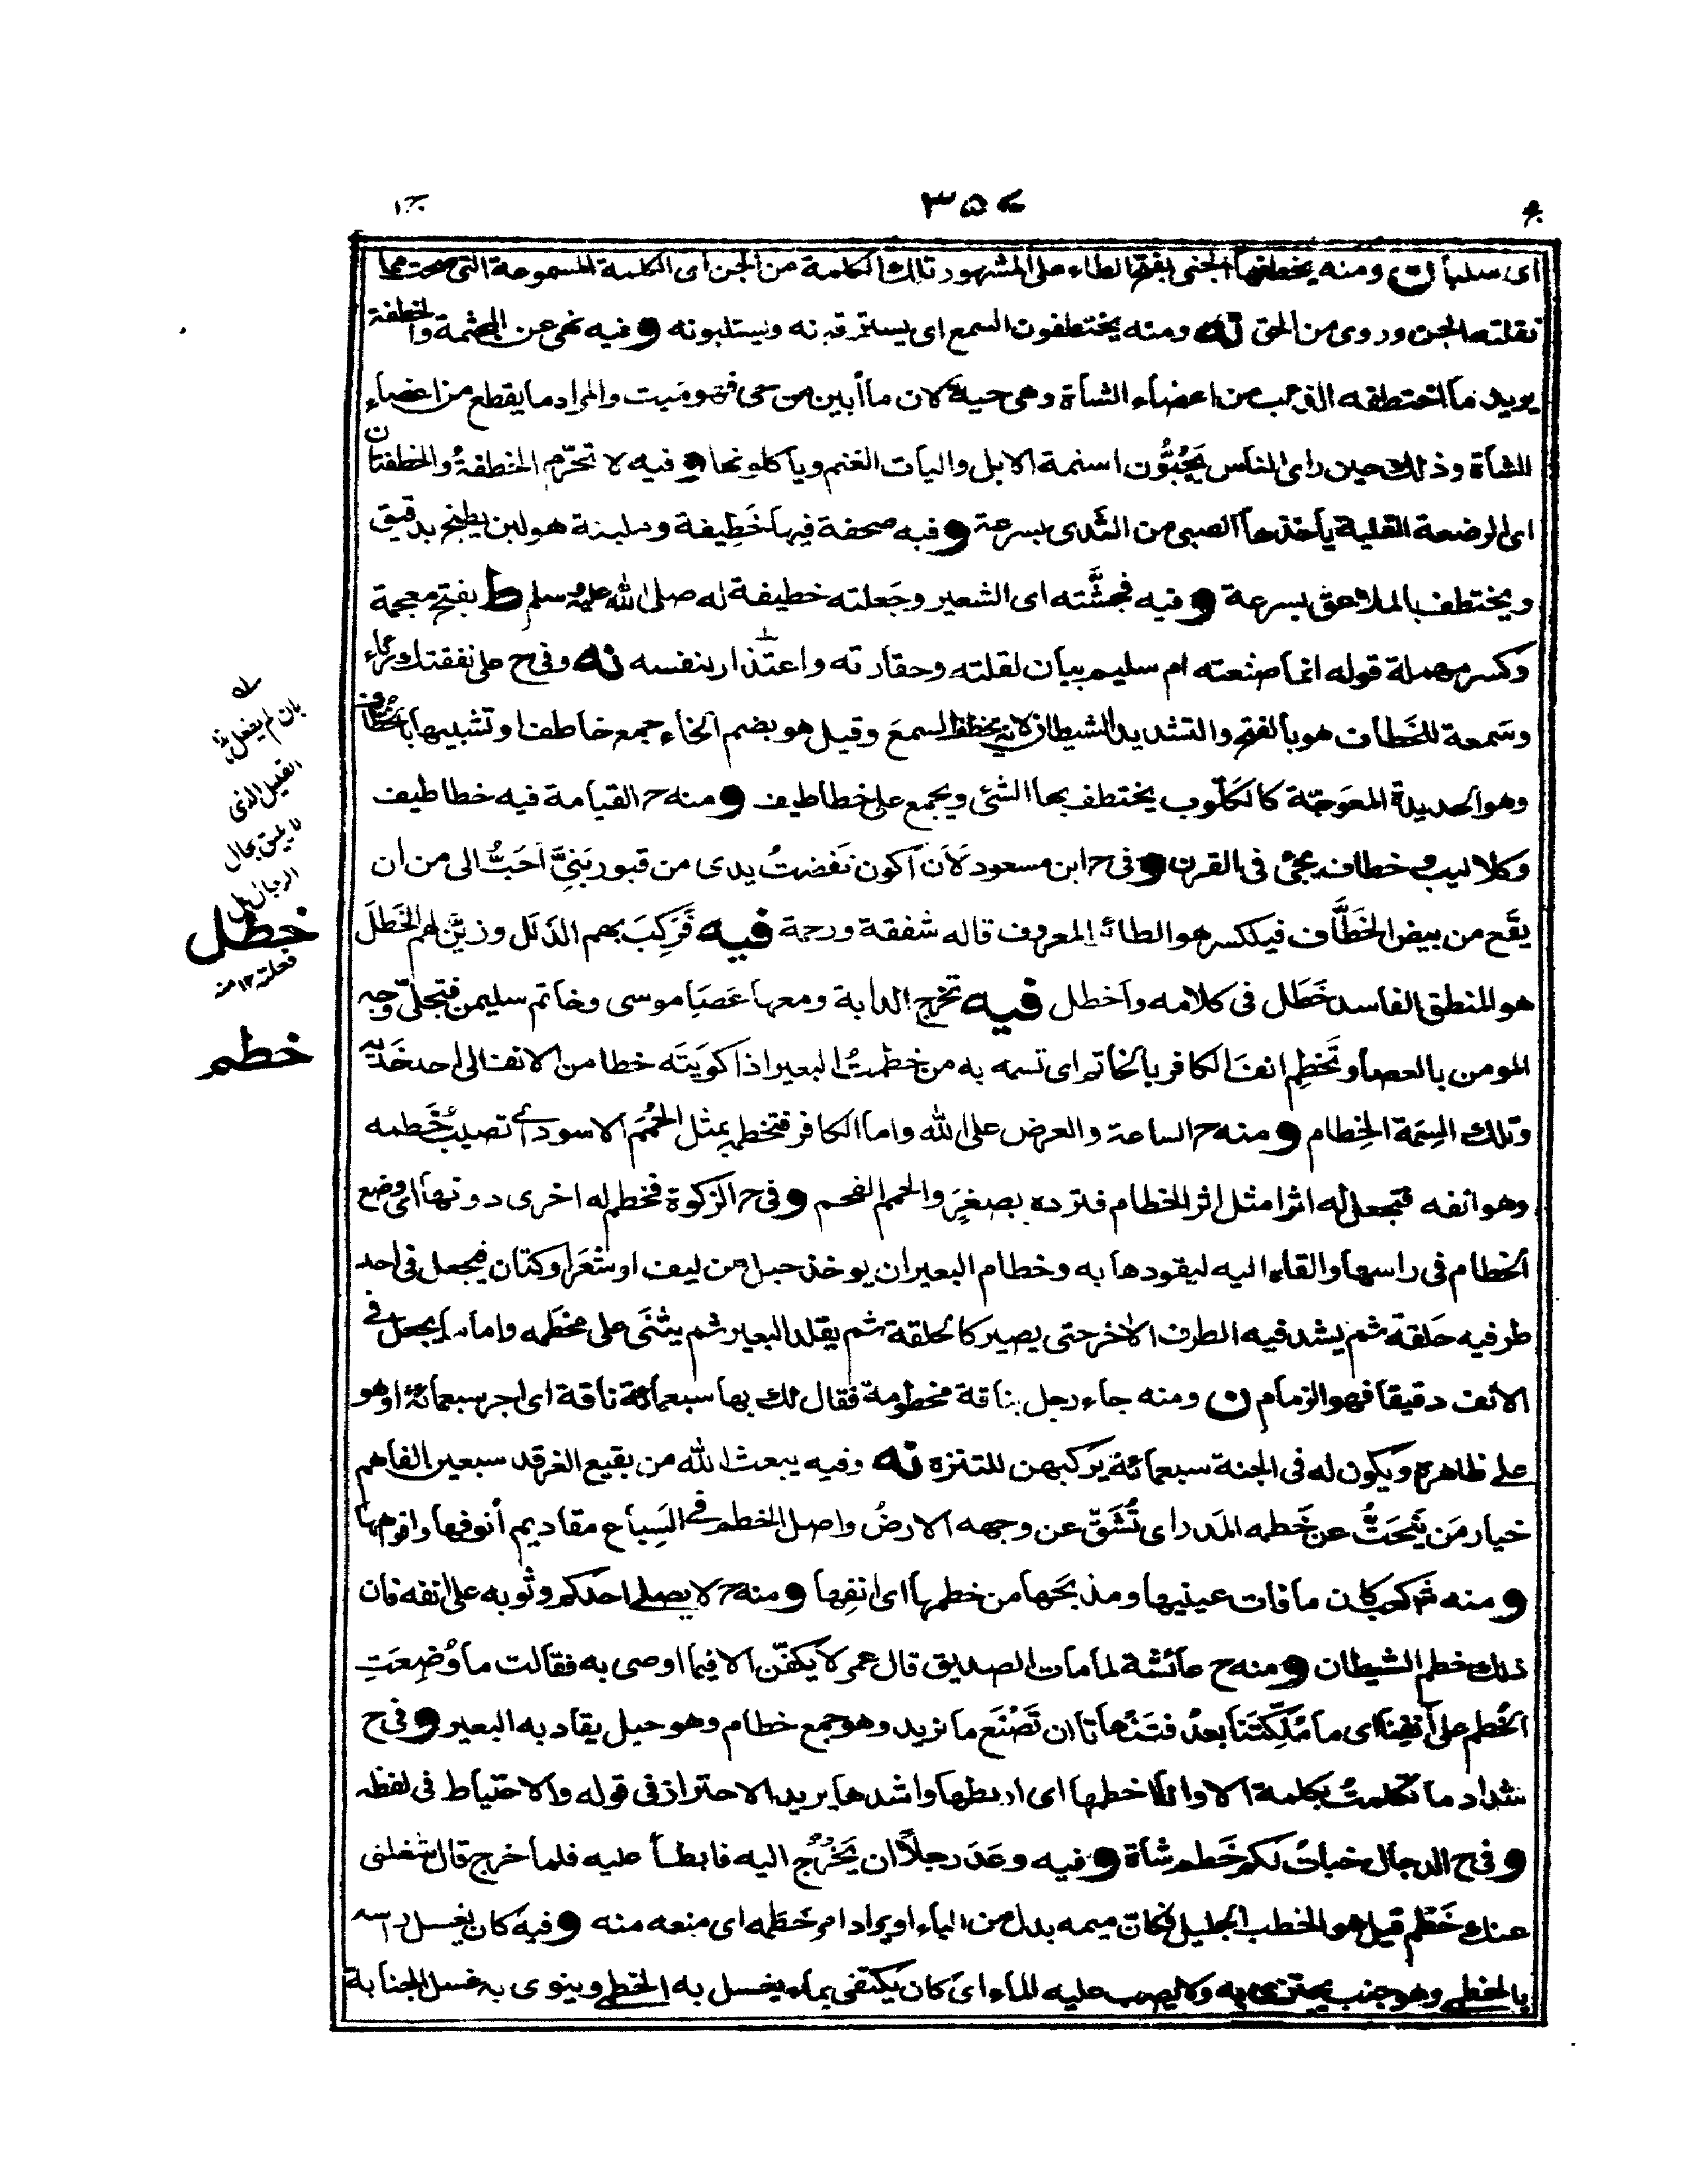 ٣٥٧
اى سلبا ن ومنه يخطفها الجنى بفتح الطاء على المشهور تلك الكلمة من الجن اى الكلمة المسموعة التى
نقلتها الجن وروى من الحق نه ومنه يختطفون السمع اى يسترقونه ويستلبونه و فيه نهى عن المجثمة والخطفة
يريد ما اختطفه الذئب من اعضاء الشاة وهى حية لان ما أبين من حى فهو ميت والمراد ما يقطع من اعضاء
الشاة وذلك حين راى الناس يَجُبُّون اسنمة الابل واليات الغنم وياكلونها و فيه لا تحرّم الخطفة والخطفتان
اى الرضعة القليلة ياخذها الصبى من الثدى بسرعة و فيه صحفة فيها خَطِيفة وملبنة هو لبن يطبخ بدقيق
ويختطف بالملاعق بسرعة و فيه فجشَّته اى الشعير وجَعلته خطيفة له صلى الله عليه وسلم ط بفتح معجمة
وكسر مهملة قوله انما صنعته ام سليم بيان لقلته وحقارته واعتذار بنفسه نه وفى ح على نفقتك رياء
وسمعة للخَطاف هو بالفتح والتشديد الشيطان لانه يخطف السمع وقيل هو بضم الخاء جمع خاطف او تشبيها بالخُطّاف
وهو الحديدة المعوَجّة كالكَلّوب يختطف بها الشئ ويجمع على خطاطيف و منه ح القيامة فيه خطاطيف
وكلاليب و خطاف يجئ فى القرن و فى ح ابن مسعود لَأن أكون نَفضتُ يدى من قبور بَنىَّ أحَبُّ الى من ان
يقَع من بيض الخَطَّاف فيتكسر هو الطائر المعروف قاله شفقة ورحمة فيه فَركِبَ بهم الذَلَل وزيَّن لهم الخَطَل
هو المنطق الفاسد خَطَل فى كلامه واخطل فيه تخرج الدابة ومعها عَصَا موسى وخاتم سليمن فتجلّى وجه
المومن بالعصا وتَخطِم انف الكافر بالخاتم اى تسمه به من خطمتُ البعير اذا كويَته خطا من الانف الى احد خَدّيه
وتلك السِمَة الخِطام و منه ح الساعة والعرض على الله واما الكافر فتخطمه بمثل الحُمَم الاسود اى تصيب خَطمه
وهو انفه فتجعل له اثرا مثل اثر الخطام فترده بصغرٍ والحمم الفحم و فى ح الزكوة فخطم له اخرى دونها اى وضع
الخطام فى راسها والقاه اليه ليقودها به وخطام البعير ان يوخذ حبل من ليف او شعَر او كتان فيجعل فى احد
طرفيه حَلقة ثم يشد فيه الطرف الاخر حتى يصير كالحلقة ثم يقلد البعير ثم يثنَى على مخطَمه واما ما يجعل فى
الانف دقيقا فهو الزمام ن ومنه جاء رجل بناقة مخطومة فقال لك بها سبعمائة ناقة اى اجر سبعمائة او هو
على ظاهره ويكون له فى الجنة سبعمائة يركبهن للتنزه نه وفيه يبعث الله من بقيع الغرقد سبعين الفا هم
خيار مَن يَنحَتُّ عن خَطمه المدَر اى تُشَقّ عن وجهه الارضُ واصل الخطم فى السِباع مقاديم أنوفها وافواهها
و منه شعر كعب كان ما فات عينيها ومذبحَها من خطمها اى انفِها و منه ح لا يصلى احدكم وثوبه على انفه فان
ذلك خطم الشيطان و منه ح عائشة لما مات الصديق قال عمر لا يكفّن الا فيما اوصى به فقالت ما وُضِعَتِ
الخُطم على أنفنا اى ما مَلَكتَنا بعدُ فتَنهانا ان تَصْنَع ما نريد وهو جمع خطام وهو حبل يقاد به البعير و فى ح
شداد ما تكلمتُ بكلمة الا وانا اخطمها اى اربطها واشدها يريد الاحتراز فى قوله والاحتياط فى لفظه
و فى ح الدجال خبأتُ لكم خَطم شاة و فيه وعَدَ رجلاً ان يَخْرُج اليه فابطأ عليه فلما خرج قال شغلنى
عنك خَطم قيل هو الخطب الجليل فكان ميمه بدل من الباء او يراد امر خَطَمه اى منعه منه و فيه كان يغسل راسه
بالخطمى وهو جنب يجتزى به ولا يصب عليه الماء اى كان يكتفى بماء يغسل به الخطمى وينوى به غسل الجنابة
بان لم يفعل
القليل الذى
لا يليق بحال
الرجال بل
خطل
فعلته ١٢ منه
خطم